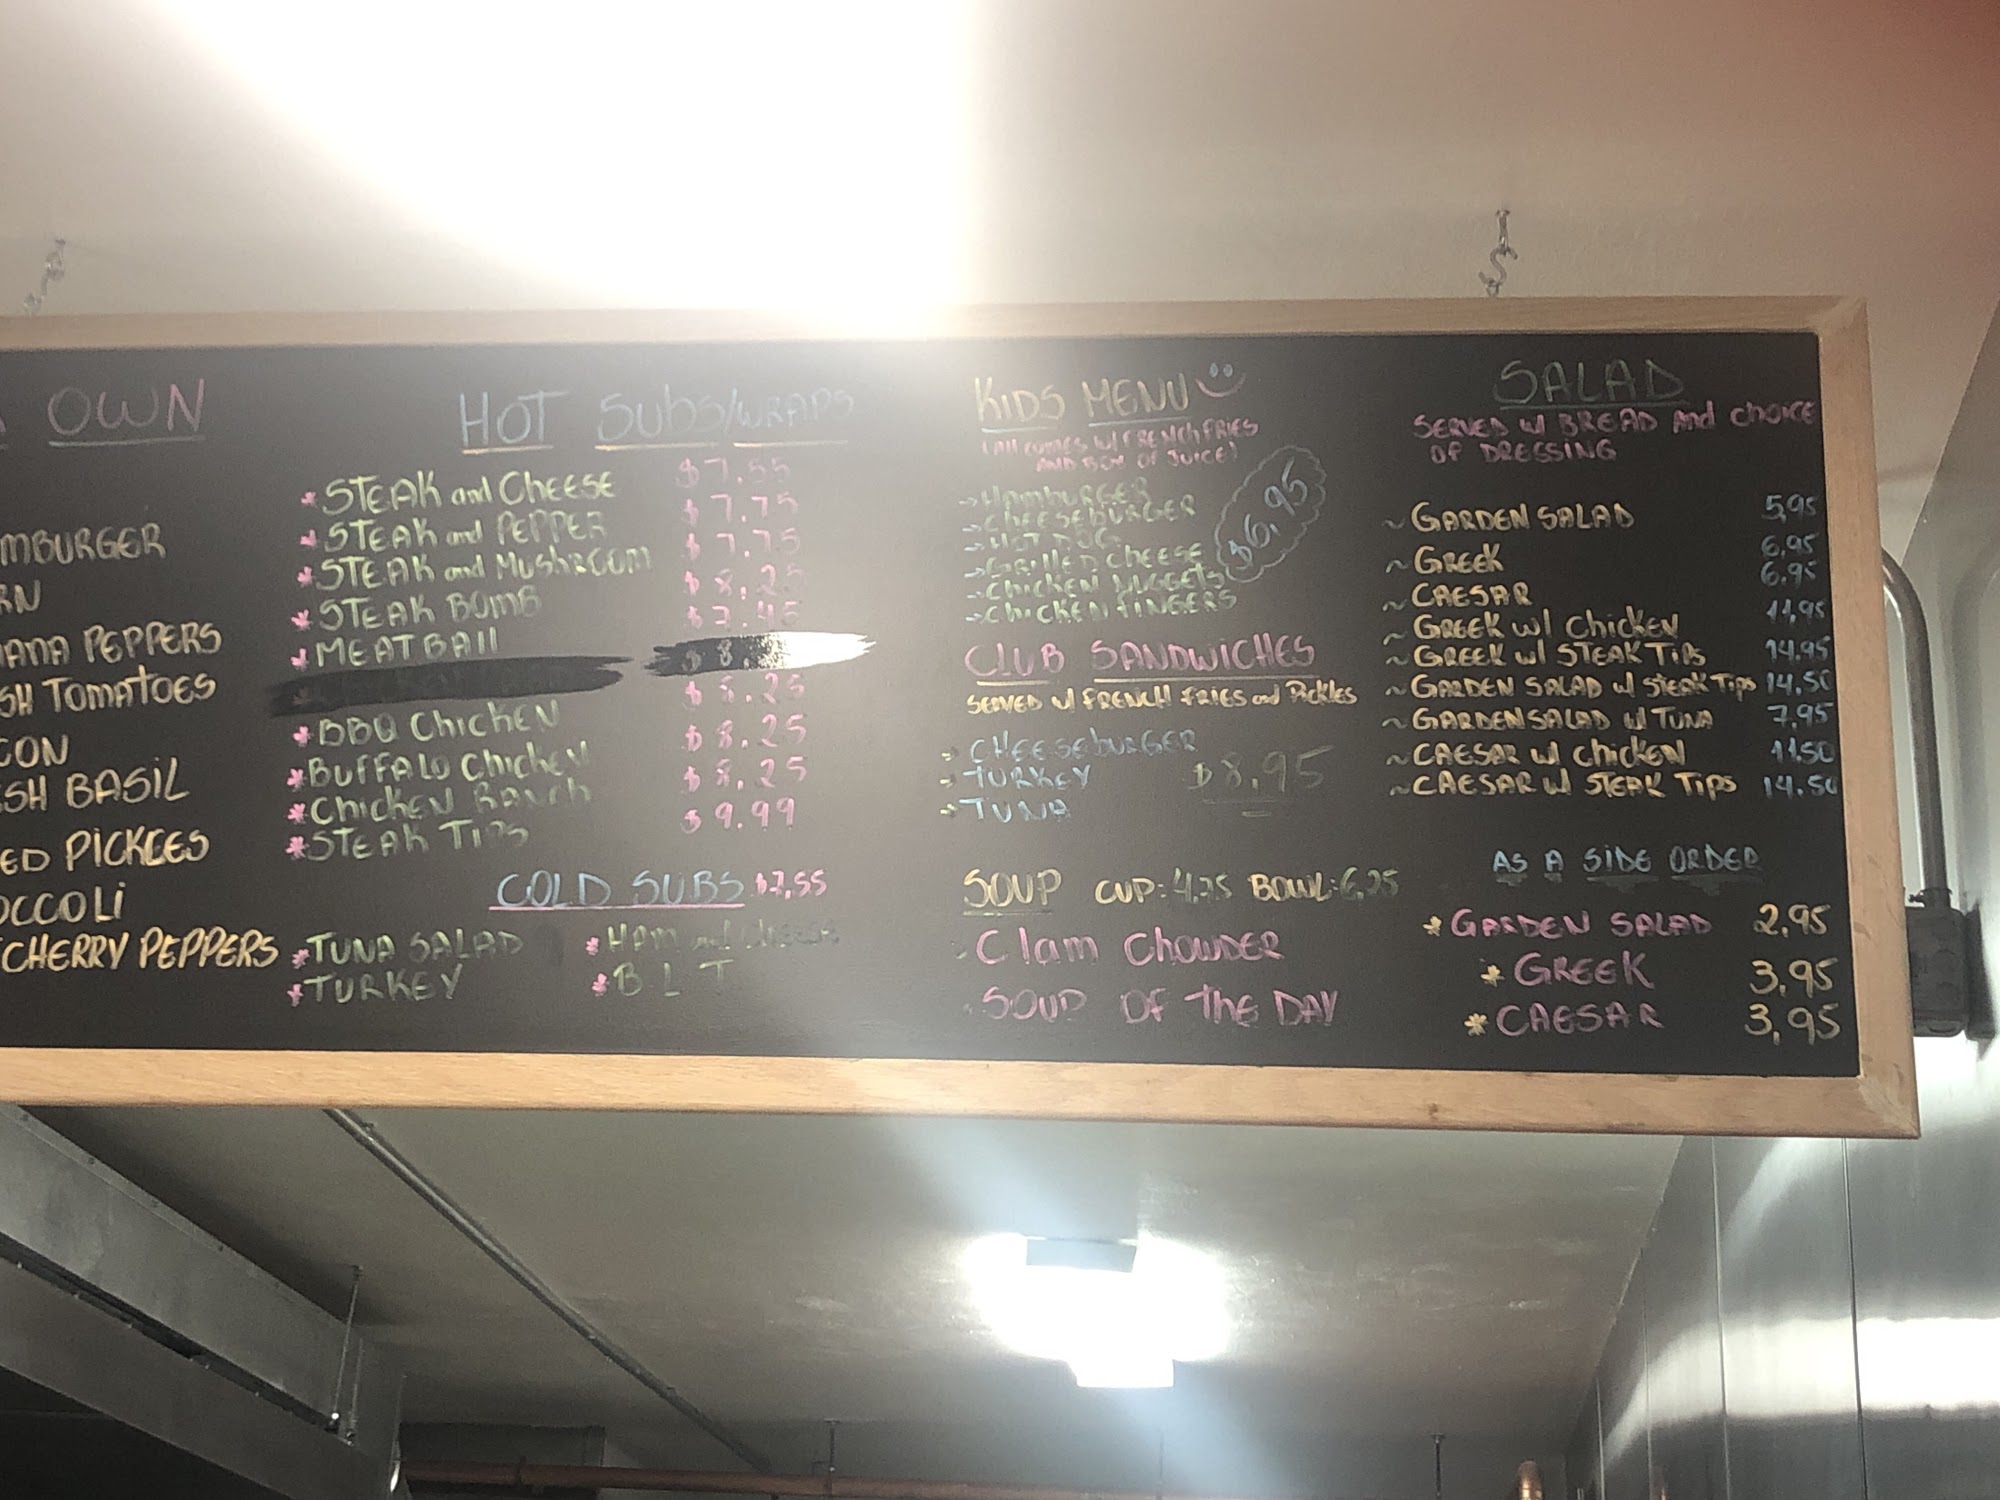 OWN
MBURGER
RN
ANA PEPPERS
SH TOMATOES
CON
SH BASIL
ED PICKLES
OCCOLI
CHERRY PEPPERS
HOT SUBS/WRAPS
* STEAK and CHEESE $7.55
* STEAK and PEPPER $7.75
* STEAK and MUSHROOM $7.75
* STEAK BOMB $8.25
* MEATBALL $7.45
* BBQ CHICKEN $8.25
* BUFFALO CHICKEN $8.25
* CHICKEN RANCH $8.25
* STEAK TIPS $9.99
COLD SUBS $7.55
* TUNA SALAD * HAM and CHEESE
* TURKEY * B L T
KIDS MENU
(All COMES W/ FRENCH FRIES
AND BOX OF JUICE)
HAMBURGER
CHEESEBURGER
HOT DOG
GRILLED CHEESE
CHICKEN NUGGETS
CHICKEN FINGERS
$6.95
CLUB SANDWICHES
SERVED W/ FRENCH FRIES and PICKLES
CHEESEBURGER
TURKEY $8.95
TUNA
SOUP CUP: 4.75 BOWL: 6.25
Clam CHOWDER
SOUP OF THE DAY
SALAD
SERVED W/ BREAD And CHOICE
OF DRESSING
~ GARDEN SALAD 5,95
~ GREEK 6.95
~ CAESAR 6.95
~ GREEK W/ CHICKEN 11,95
~ GREEK W/ STEAK TIPS 14.95
~ GARDEN SALAD W/ STEAK TIPS 14.50
~ GARDEN SALAD W/ TUNA 7,95
~ CAESAR W/ CHICKEN 11.50
~ CAESAR W/ STEAK TIPS 14.50
AS A SIDE ORDER
* GARDEN SALAD 2,95
* GREEK 3,95
* CAESAR 3,95